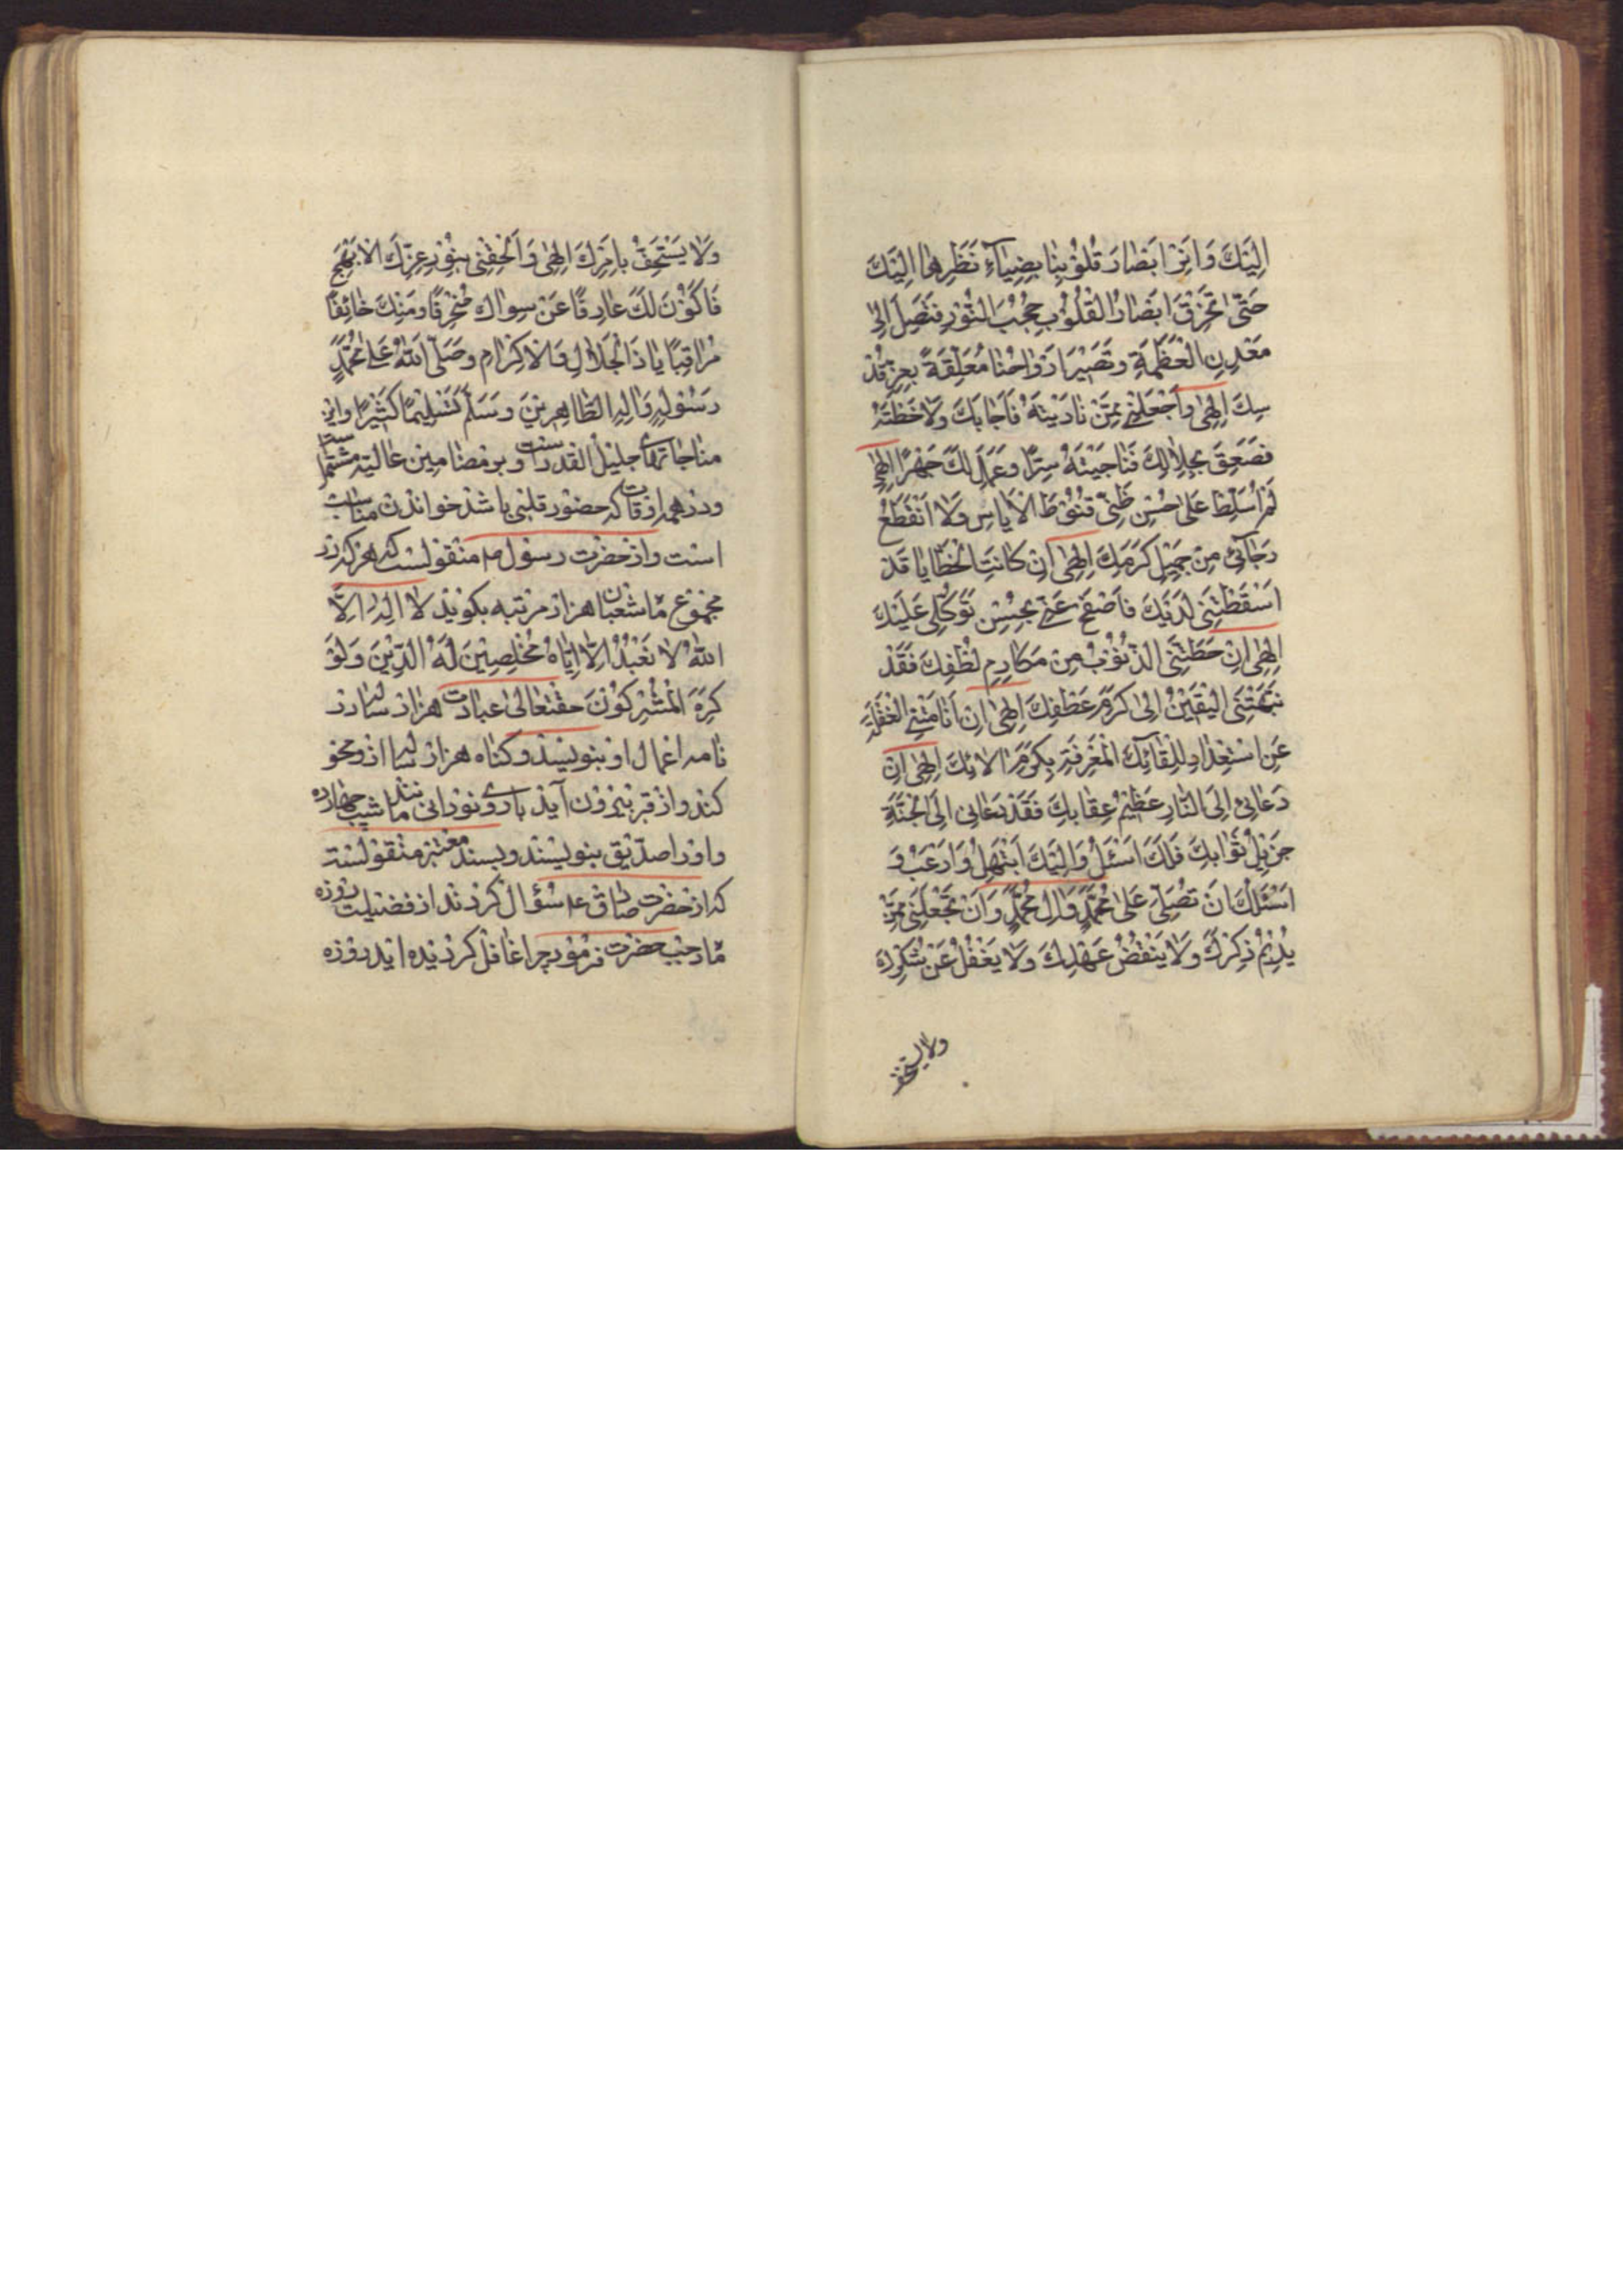 اِلَيْكَ وَاَنِرْ اَبْصارَ قُلُوْبِنا بِضِيآءِ نَظَرِها اِلَيْكَ
حَتّى تَخْرِقَ اَبْصارُ الْقُلُوْبِ حُجُبَ النُّوْرِ فَتَصِلَ اِلى
مَعْدِنِ الْعَظَمَةِ وَتَصِيْرَ اَرْواحُنا مُعَلَّقَةً بِعِزِّ قُدْ
سِكَ اِلهى وَاجْعَلْنى مِمَّنْ نادَيْتَهُ فَاَجابَكَ وَلاحَظْتَهُ
فَصَعِقَ بِجِلالِكَ فَناجَيْتَهُ سِرًّا وَعَمِلَ لَكَ جَهْرًا اِلهى
لَمْ اُسَلِّطْ عَلى حُسْنِ ظَنّى قُنُوْطَ الْاَياسِ وَلاَ انْقَطَعَ
رَجآئى مِنْ جَمِيْلِ كَرَمِكَ اِلهى اِنْ كانَتِ الْخَطايا قَدْ
اَسْقَطَتْنى لَدَيْكَ فَاصْفَحْ عَنّى بِحُسْنِ تَوَكُّلى عَلَيْكَ
اِلهى اِنْ حَطَّتْنى الذُّنُوْبُ مِنْ مَكارِمِ لُطْفِكَ فَقَدْ
نَبَّهَنِى الْيَقِيْنُ اِلى كَرَمِ عَطْفِكَ اِلهى اِنْ اَنامَتْنِى الْغَفْلَةُ
عَنِ اسْتِعْدادِ لِلِقآئِكَ الْمَعْرِفَةِ بِكَرَمِ الائِكَ اِلهى اِنْ
دَعانى اِلَى النّارِ عَظِيْمُ عِقابِكَ فَقَدْ دَعانى اِلَى الْجَنَّةِ
جَزِيْلُ ثَوابِكَ فَلَكَ اَسْئَلُ وَاِلَيْكَ اَبْتَهِلُ وَاَرْغَبُ وَ
اَسْئَلُكَ اَنْ تُصَلِّىَ عَلى مُحَمَّدٍ وَالِ مُحَمَّدٍ وَاَنْ تَجْعَلَنى مِمَّنْ
يُدِيْمُ ذِكْرَكَ وَلا يَنْقُضُ عَهْدَكَ وَلا يَغْفُلُ عَنْ شُكْرِكَ
ولا يستخف
وَلا يَسْتَخِفُّ بِاَمْرِكَ اِلهى وَاَلْحِقْنى بِنُوْرِ عِزِّكَ الْاَبْهَجِ
فَاَكُوْنَ لَكَ عارِفًا عَنْ سِواكَ مُنْحَرِفًا وَمِنْكَ خائِفًا
مُراقِبًا يا ذَا الْجَلالِ وَالْاِكْرامِ وَصَلَّى اللّهُ عَلى مُحَمَّدٍ
رَسُوْلِهِ وَالِهِ الطّاهِرِيْنَ وَسَلَّمَ تَسْلِيْمًا كَثِيْرًا واين
مناجاتهاى جليل القدر است و بر مضامين عاليه مشتمل است
و در همه اوقات كه حضور قلبى باشد خواندن مناسب
است و از حضرت رسول ص منقولست كه هر كه در
مجموع ماه شعبان هزار مرتبه بگويد لا اِلهَ اِلاَّ
اللّهُ لا نَعْبُدُ اِلاّ اِيّاهُ مُخْلِصِيْنَ لَهُ الدِّيْنَ وَلَوْ
كَرِهَ الْمُشْرِكُوْنَ حقتعالى عبادت هزار ساله در
نامه اعمال او بنويسد و گناه هزار ساله از او محو
كند و از قبر بيرون آيد با روى نورانى مانند ماه شب چهارده
و او را صدّيق بنويسند و بسند معتبر منقولست
كه از حضرت صادق ع سؤال كردند از فضيلت روزه
ماه رجب حضرت فرمود چرا غافل گرديده ايد از روزه